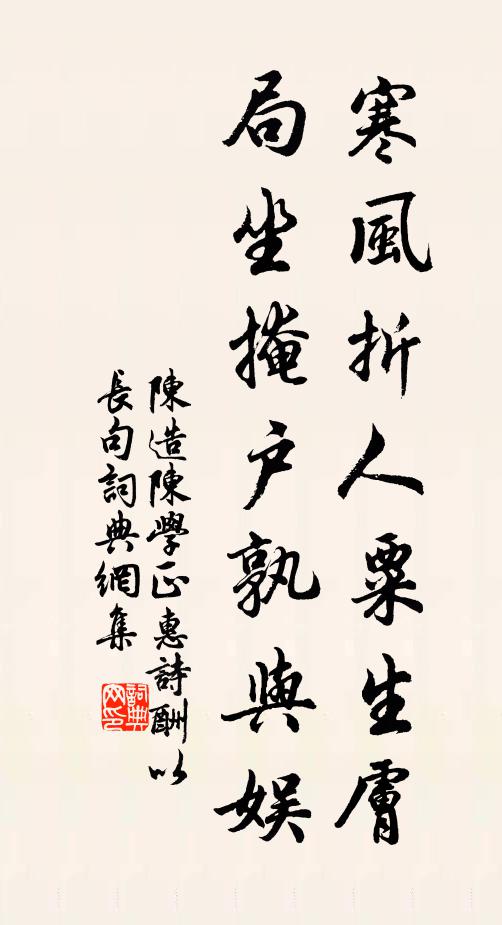 寒風折人粟生膚
局坐掩户孰與娱
陳造陳學正惠詩酬以
長句詞典網集
詞典
网印